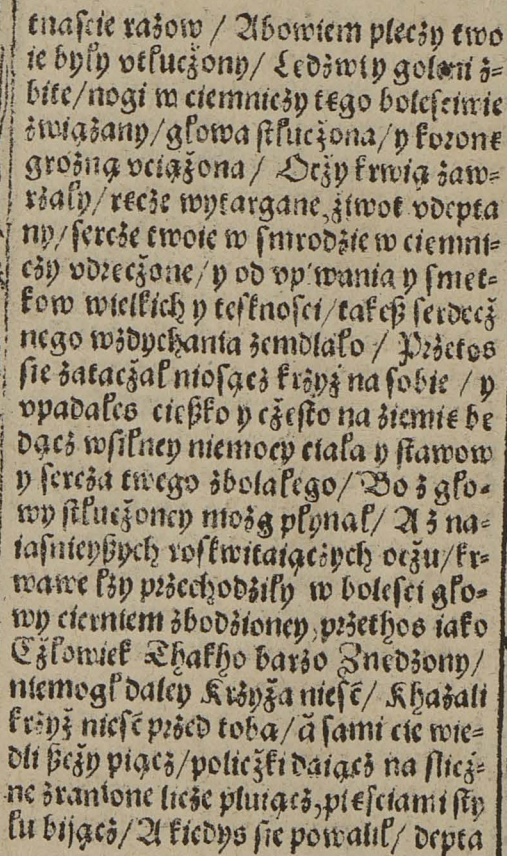 tnaście rażow / Abowiem plecży two
ie były vtłucżony / Lędżwiy goleni ż-
bite / nogi w ciemnicży tęgo boleściwie
żwiążany / głowa stłucżona / y koronę
groźną vciążona / Ocży krwią żaw-
rżały / ręcże wytargane, żiwot vdepta
ny / sercże twoie w smrodżie w ciemni-
cży vdręcżone / y od vpiwania y smęt-
kow wielkich y teskności / takeß serdecż
nego wżdychania żemdlało / Prżetoś
się żatacżał niosącż krżyż na sobie / y
vpadałeś cięßko y cżęsto na żiemię bę
dącż wsilney niemocy ciała y stawow
y sercża twego żbolałego / Bo ż gło-
wy stłucżoney mozg płynął / A ż na-
iaśnieyßych roskwitaiącżych ocżu / kr-
wawe łży prżechodżiły w boleści gło-
wy cierniem żbodżioney, prżethoś iako
Cżłowiek Thakho barżo Znędżony /
niemogł daley Krżyża nieść / Khażali
krżyż nieść przed tobą / á sami cię wie-
dli ßcży piącż / policżki daiącż na slicż-
ne żranione licże pluiącż, pięściami sty
łu bijącż / A kiedyś się powalił / depta